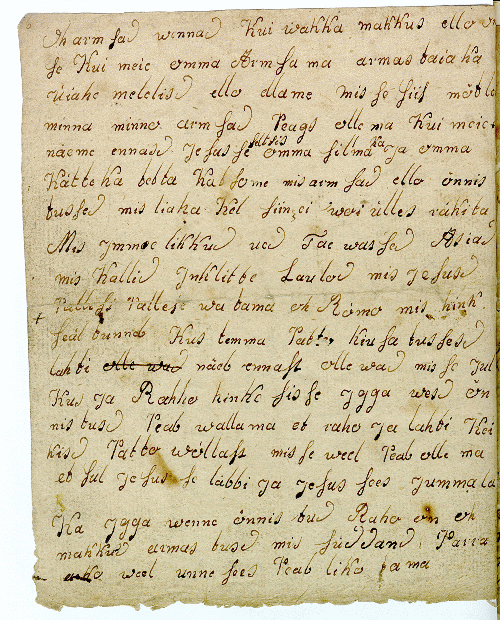 Oh arm sad wennad Kui wakka makkus ello on
se Kui meie omma Arm sa ma armas taiaka
üiahe melelisd ello olame mis se siis mötle
minna minno arm sad Peags olle ma Kui meie
näeme ennasd Jesusse seltsis omma silma ka ja omma
Kätteka tebta Katsome mis arm sad ello önnis
tussed mis liaka Kel siin ei woi ülles räkita
Mis Jmme likkud ued Tae wassed Asiad
mis Kallid Jnklitte Laulod mis Jesusd
Palliast Pallese wa tama oh Römo mis hink
seäl tunnd Kus temma Patto Kiu sa tussesd
lahti näeb ennast olle wad mis se Jul
Kus ja Rahho hinke sis se Jgga wesd ön
nis tusd Peab walla ma et raho ja lahti Kei
Kisd Patto wöllast mis se weel Peab olle ma
et sul Jesus se läbbi ja Jesus sees Jummala
Ka Jgga wenne önnis tud Raho ön oh
makkud armas tusd mis süddand Parra
weel unne sees Peab liko ma